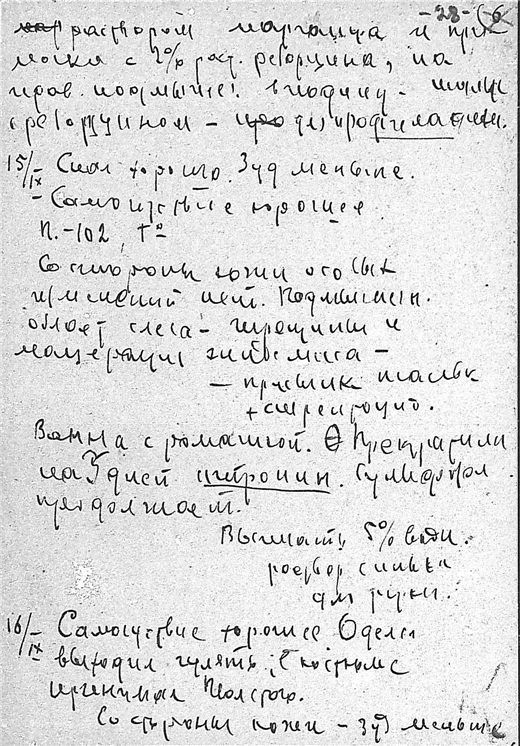 -28-
раствором марганца и при
мочки с 2% раст. резорцина, на
прав. подмышеч. впадину -
с резорцином -
15/IX Спал хорошо. Зуд меньше.
- Самочувствие хорошее
П. -102, Т°
Со стороны кожи особых
изменений нет. Подмышечн.
област слева - трещины и
мацерация эпидермиса -
- присыпка тальк
+ стрептоцид.
Ванна с ромашкой. Прекратили
на 3 дней. Сульфазол
продолжает.
5% водн.
раствор синьки
для руки.
16/IX Самочувствие хорошее. Оделся
выходил гулять, в костюме
Толстого.
Со стороны кожи - зуд меньше